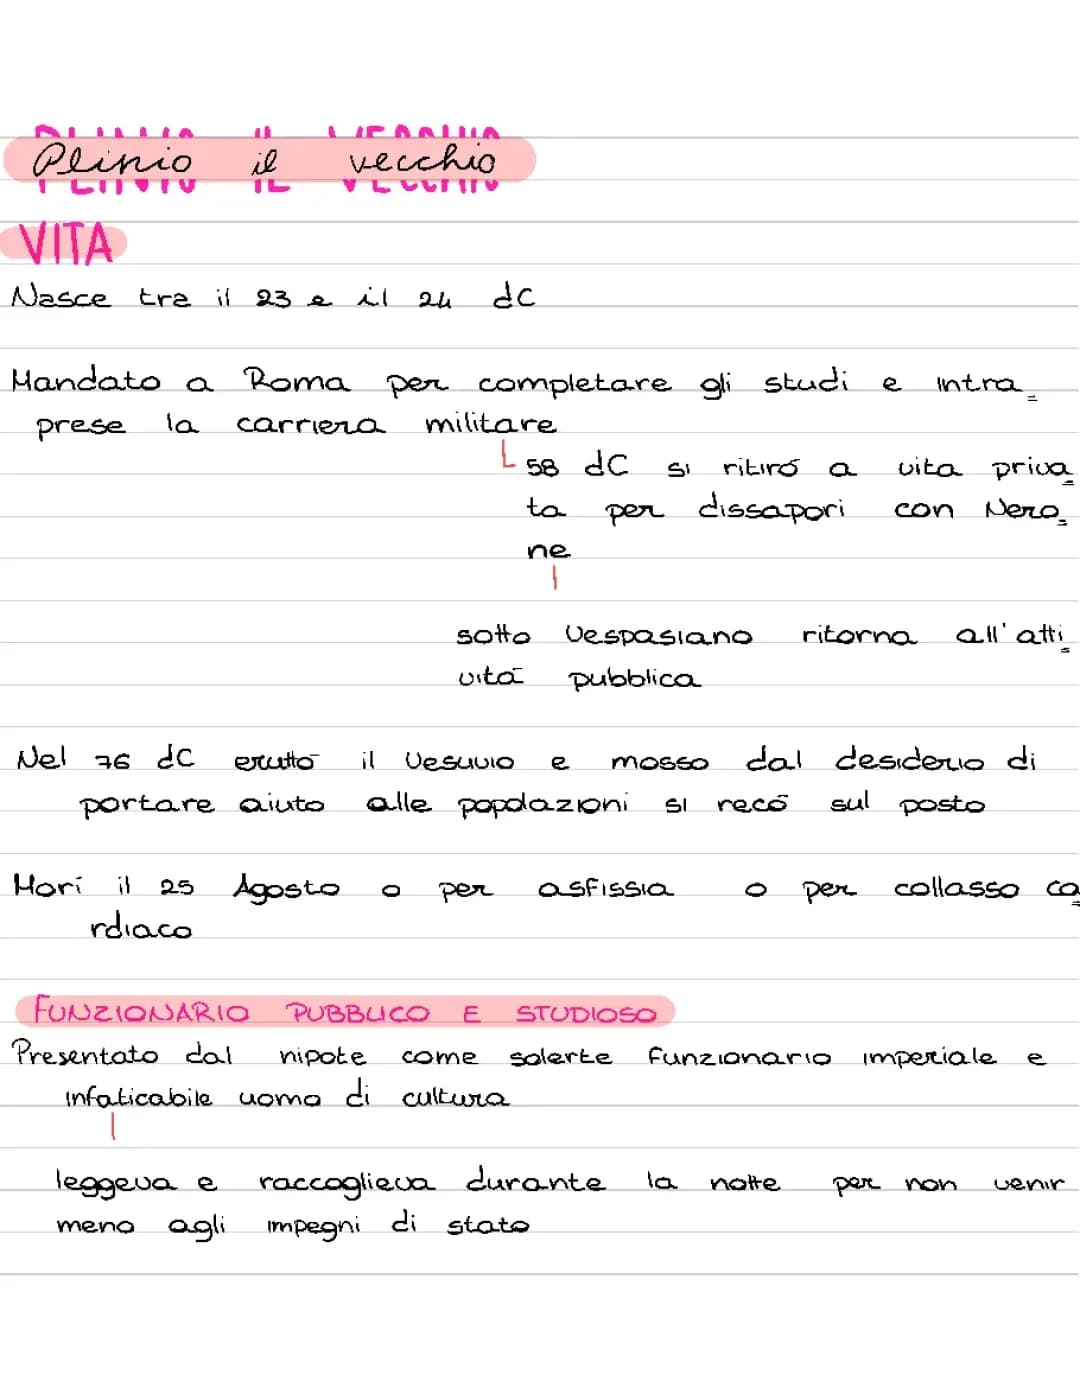 Plinio il vecchio
VITA
Nasce tra il 23 e il 24 dC
Mandato a Roma per completare gli studi e intra_
prese la carriera militare
58 dC si ritirò a vita priva_
ta per dissapori con Nero_
ne
sotto Vespasiano ritorna all'atti_
vità pubblica
Nel 76 dC eruttò il Vesuvio e mosso dal desiderio di
portare aiuto alle popolazioni si recò sul posto
Morì il 25 Agosto o per asfissia o per collasso ca_
rdiaco
FUNZIONARIO PUBBLICO E STUDIOSO
Presentato dal nipote come solerte funzionario imperiale e
infaticabile uomo di cultura
leggeva e raccoglieva durante la notte per non venir
meno agli impegni di stato